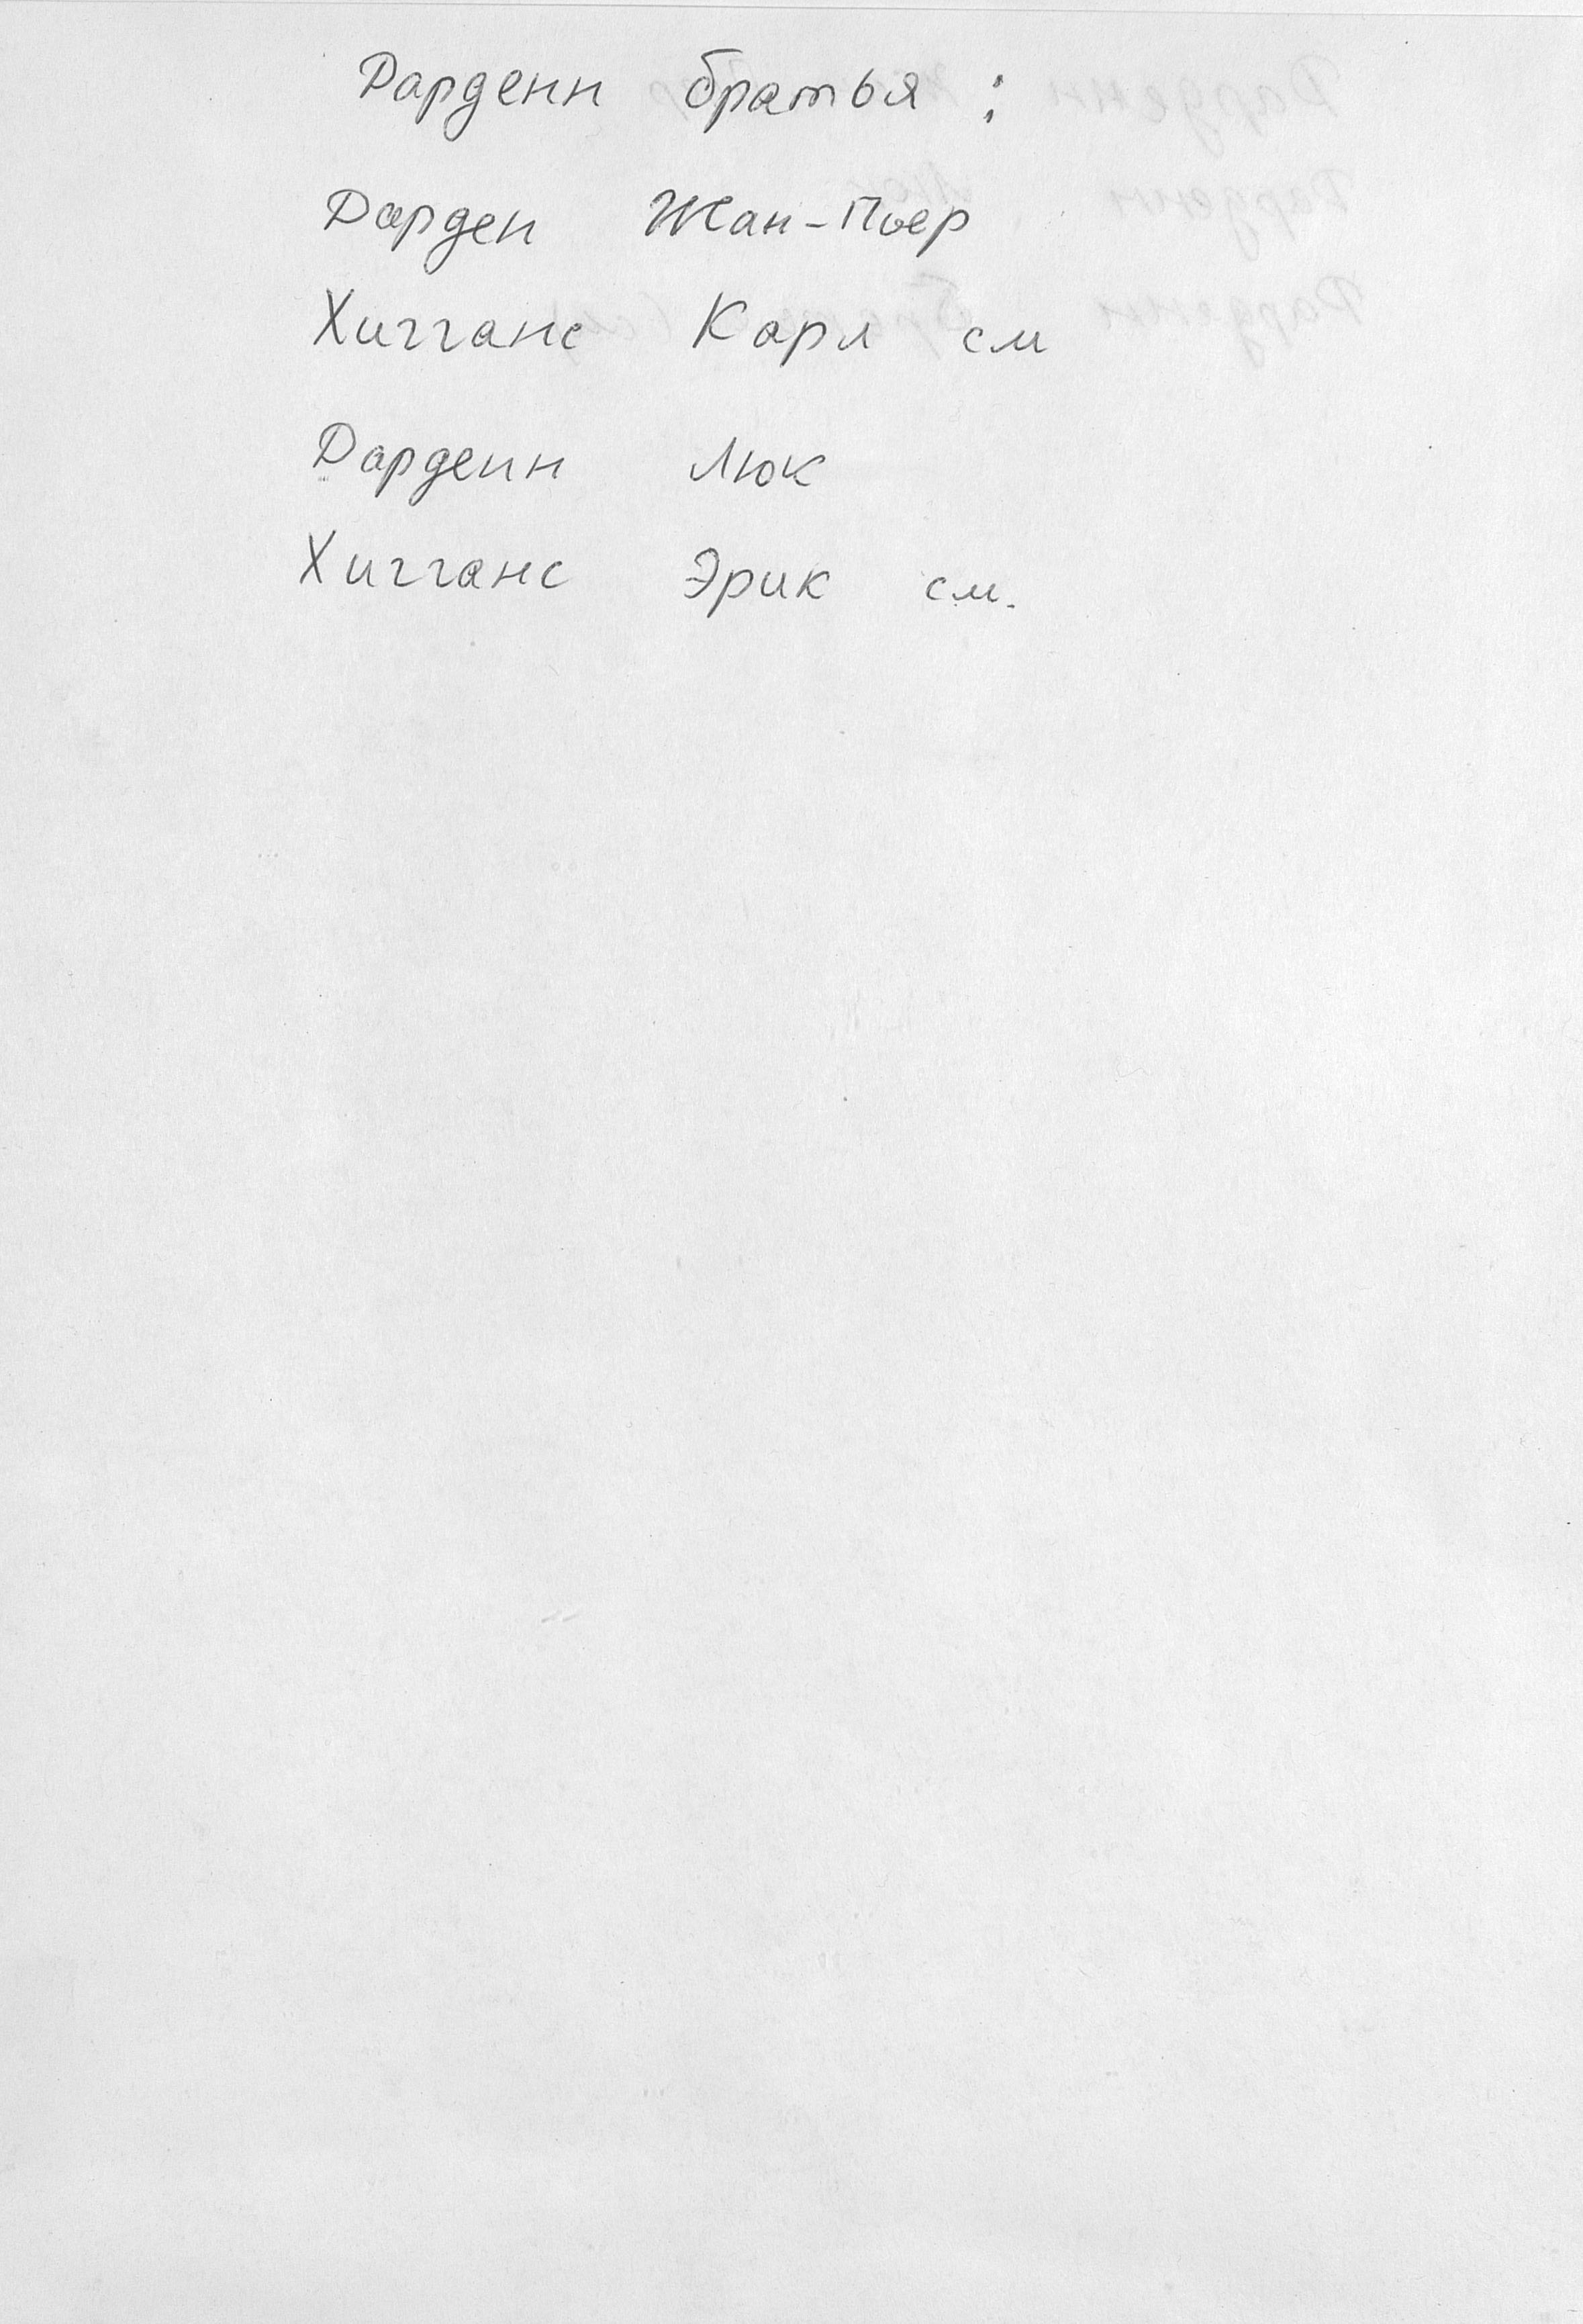 Дарденн братья :
Дарден Жан-Пьер
Хигганс Карл см
Дарденн Люк
Хигганс Эрик см.